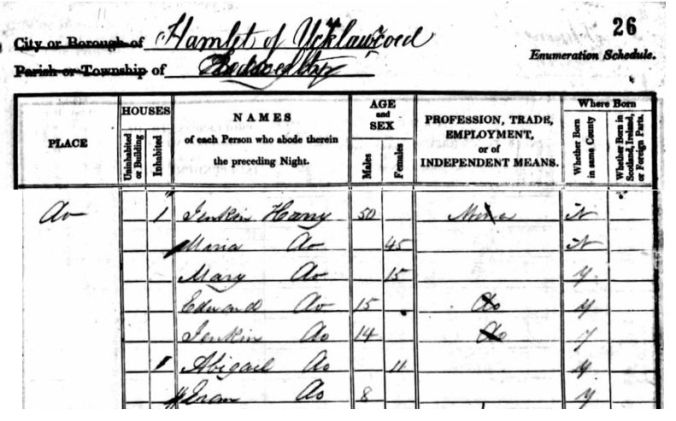 26
City or Borough of Hamlet of
Parish or Township of
Enumeration Schedule.
PLACE
HOUSES
Uninhabited or Building
Inhabited
NAMES
of each Person who abode therein
the preceding Night.
AGE
and
SEX
Males
Females
PROFESSION, TRADE,
EMPLOYMENT,
or of
INDEPENDENT MEANS.
Where Born
Whether Born in same County
Whether Born in Scotland, Ireland, or Foreign Parts.
Do 1 Jenkin Harry 50 N
Maria Do 45 N
Mary Do 15 y
Edward Do 15 Do y
Jenkin Do 14 Do y
1 Abigail Do 11 y
Do 8 y